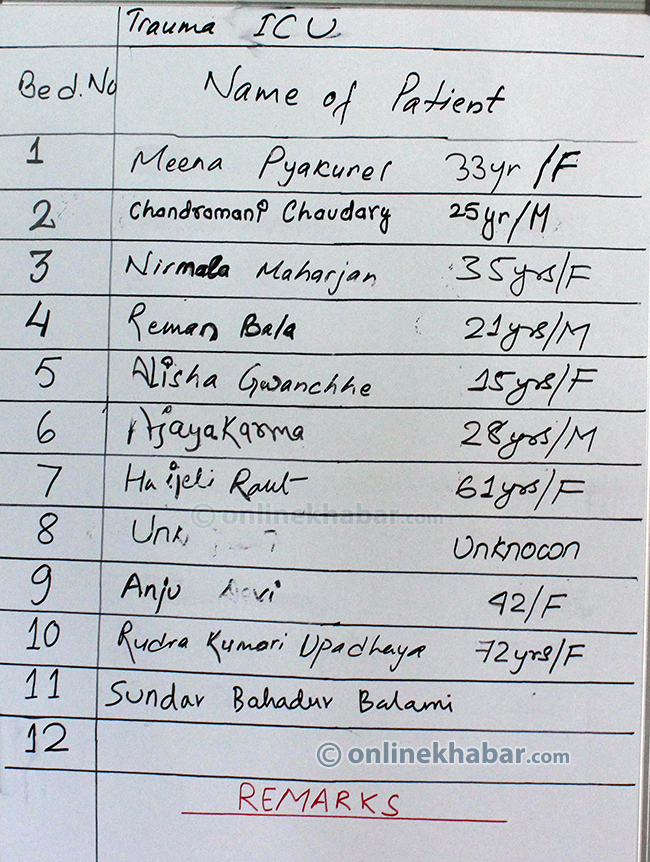 Trauma ICU
Bed.No Name of Patient
1 Meena Pyakurel 33yr/F
2 Chandramani Chaudary 25yr/M
3 Nirmala Maharjan 35yrs/F
4 Reman Bala 21yrs/M
5 Alisha Gwanchhe 15yrs/F
6 Ajaya Karma 28yrs/M
7 Raut 61yrs/F
© onlinekhabar.com
8 Unk Unknown
9 Anju 42/F
10 Rudra Kumari Upadhaya 72yrs/F
11 Sundar Bahadur Balami
12
© onlinekhabar.com
REMARKS